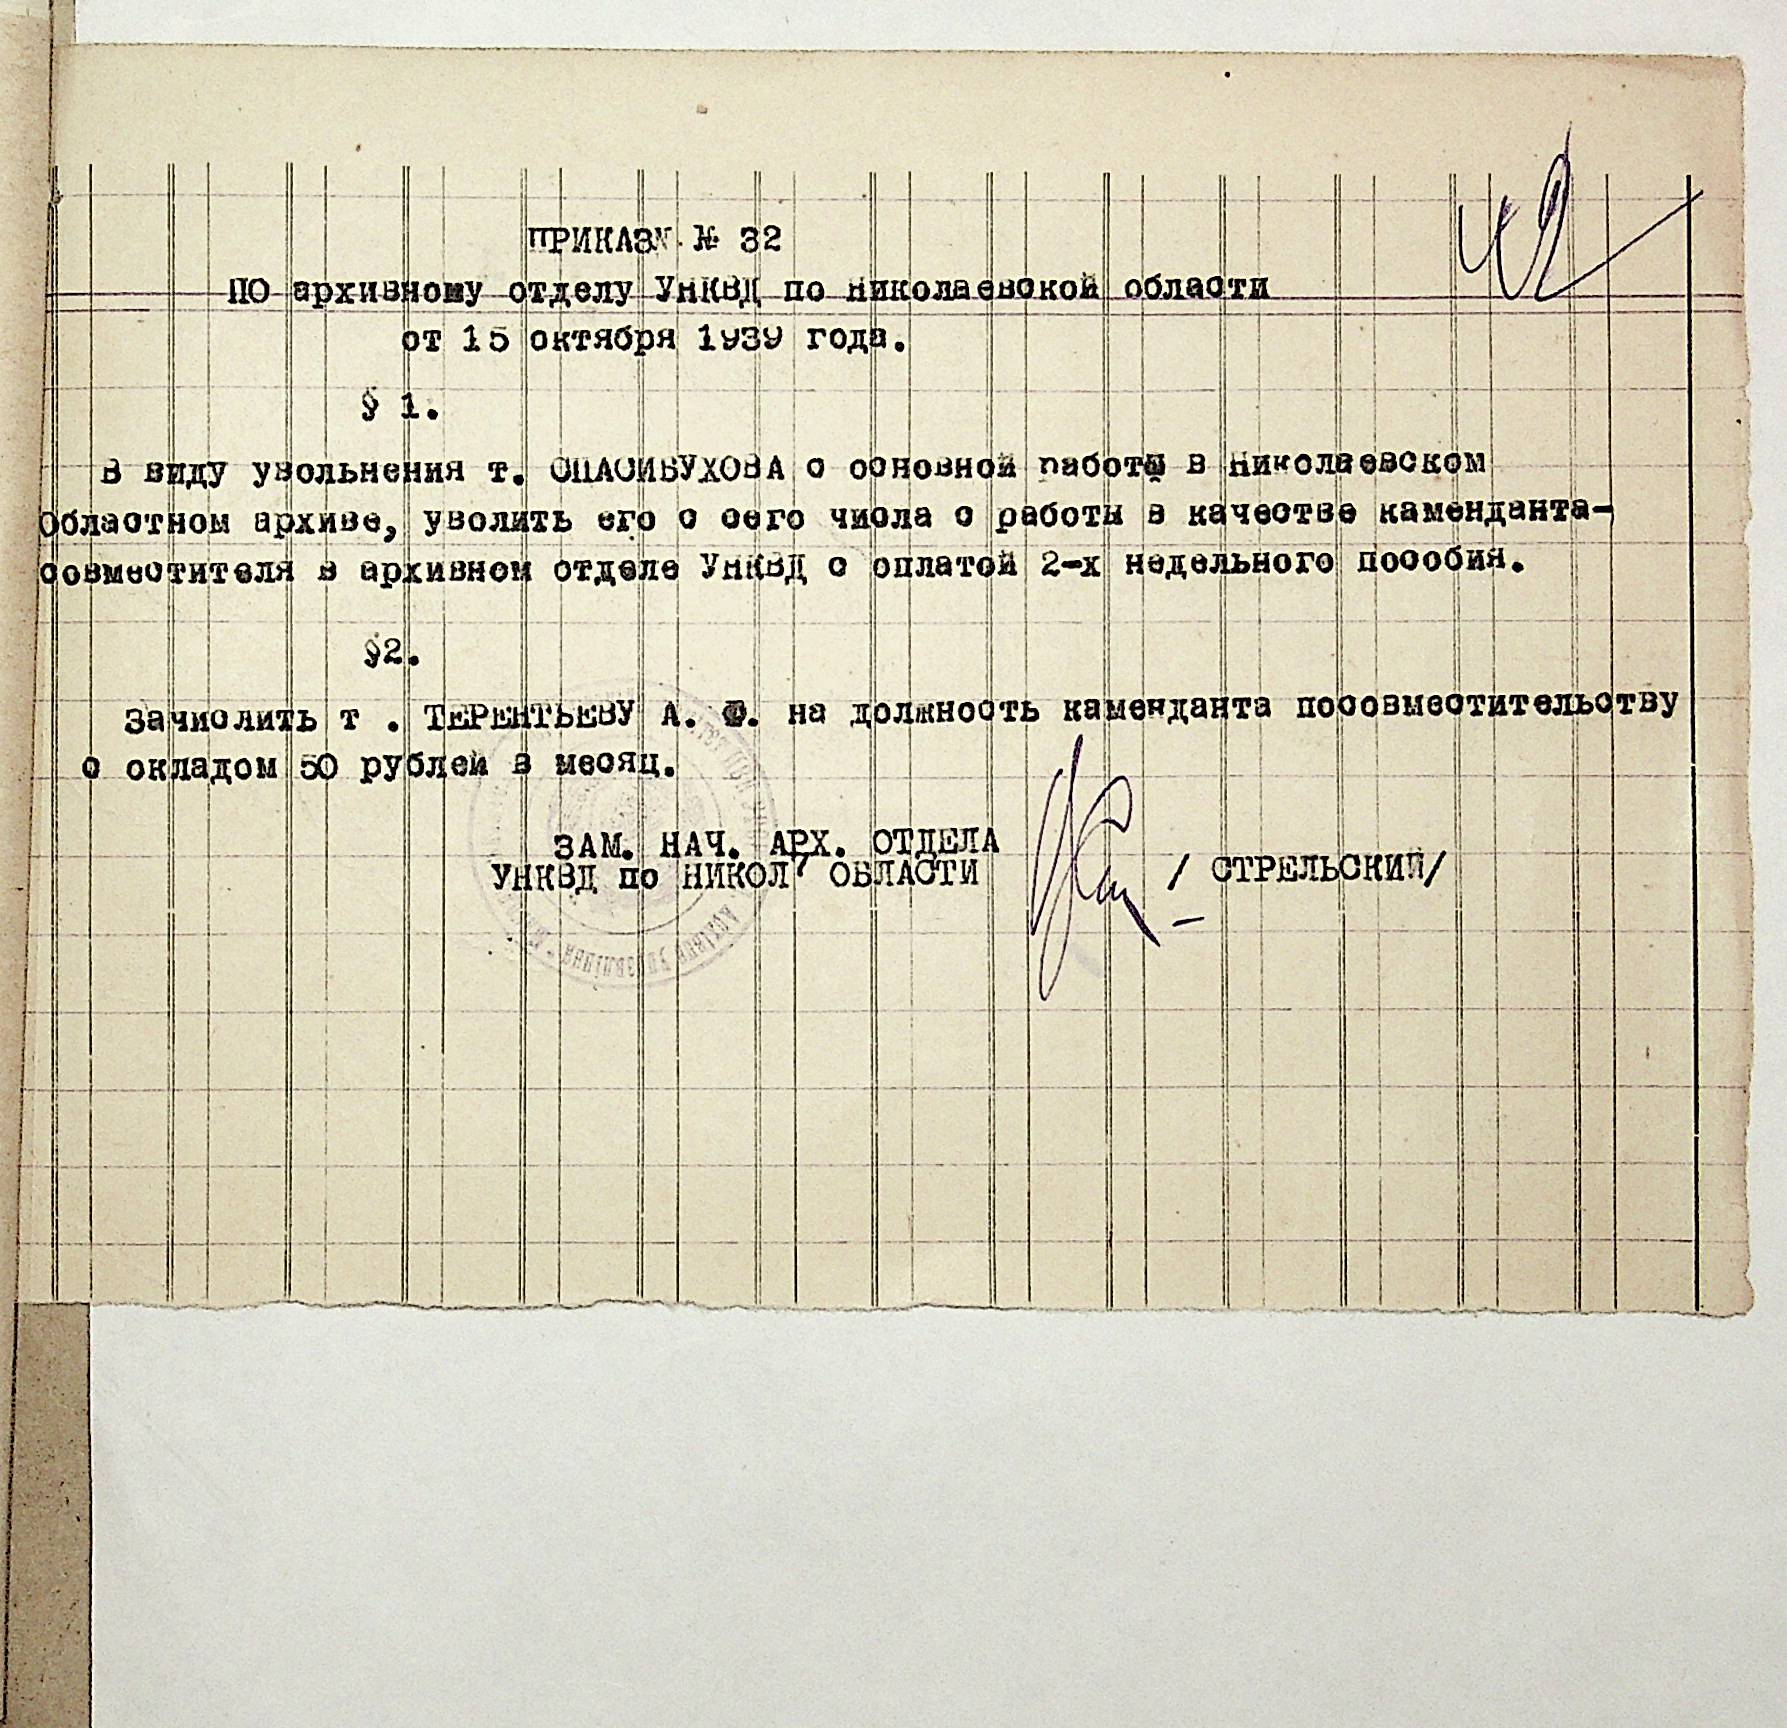 42
ПРИКАЗ № 32
ПО архивному отделу УНКВД по Николаевской области
от 15 октября 1939 года.
§ 1.
В виду увольнения т. СПАСИБУХОВА с основной работы в Николаевском
Областном архиве, уволить его с сего числа с работы в качестве каменданта-
совместителя в архивном отделе УНКВД с оплатой 2-х недельного пособия.
§2.
Зачислить т . ТЕРЕНТЬЕВУ А. Ф. на должность каменданта посовместительству
с окладом 50 рублей в месяц.
ЗАМ. НАЧ. АРХ. ОТДЕЛА
УНКВД по НИКОЛ ОБЛАСТИ / СТРЕЛЬСКИЙ/